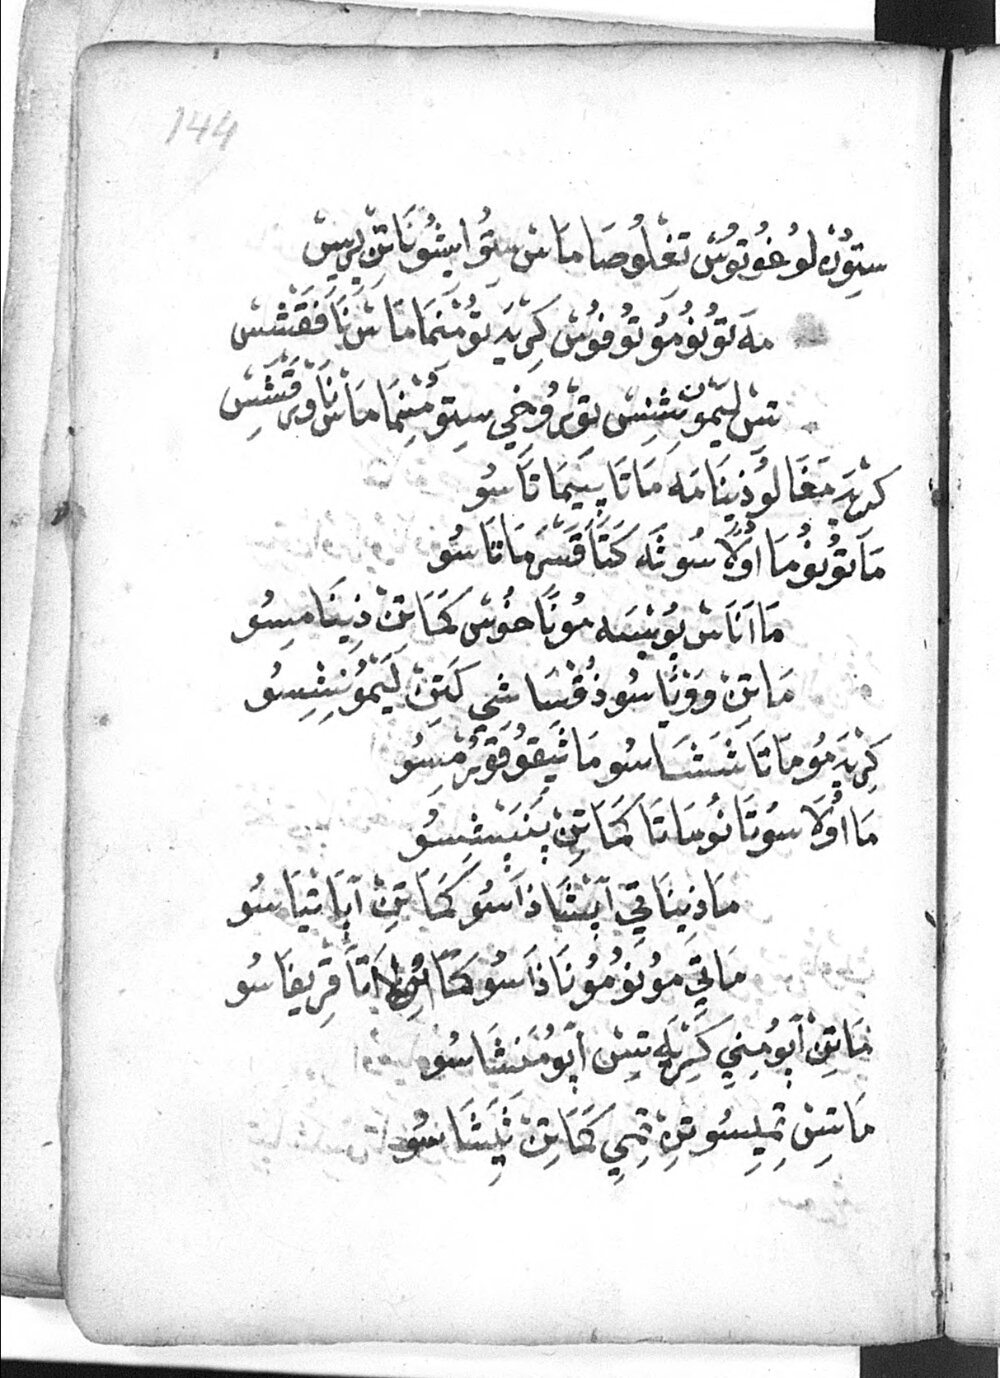 144
ستِوُنْ لُوغُوتُوسْ تغْلُوصَامَاسْ سْتِوُ ايشُونَاتِنْ پِرِسِيْ
مَه تُوْنُوُمُوُ تُوُ فُوُسْ كِرْيَه تُوْ مْنَمَامَاسْ نَافَقَشْسْ
تسْ لَيْمُونْشِنِسْ تُوْرُوُخِي سِتِوُ مْنِمَامَاسْ نَاوِرْقَشَسْ
كِرْيَه مَغَالُو ذِينَامَه مَاتَا پِيَمَاتَاسُو
مَا تُوْنُوُمَا اُولَاسُو ثَه كَتَاقَسَ مَاتَاسُو
مَا اَنَاسْ پِوُيِسَه مُونَاخُوسْ كَمَا تِنْ ذِينَامِسُو
مَاتِنْ وِوِثْيَاسُو ذُقْسَاشِي كَتِنْ لَيْمُونِشِسُو
كِرْيَه مُومَاتَا شَشَاسُو مَاثِيقُو قَوِرْمِسُو
مَا اُولَاسُوتَا نُوسَاتَا كَمَا تِنْ پَنَيَشِسُو
مَا ذِينَاتِي آپِشَا ذَاسُو كَمَا تِنْ آپَاتِيَاسُو
مَاتِي مُوْنُوُمُوُنَا ذَاسُو كَتَا اَتَاقِرِيفَاسُو
مَاتِنْ آپُومِنِي كِرْيَه تِسْ آپُومَنِشَاسُو
مَاتِسْ تِمِيلِسُو تِنْ تِمِي كَمَا تِنْ ثِلِشَاسُو